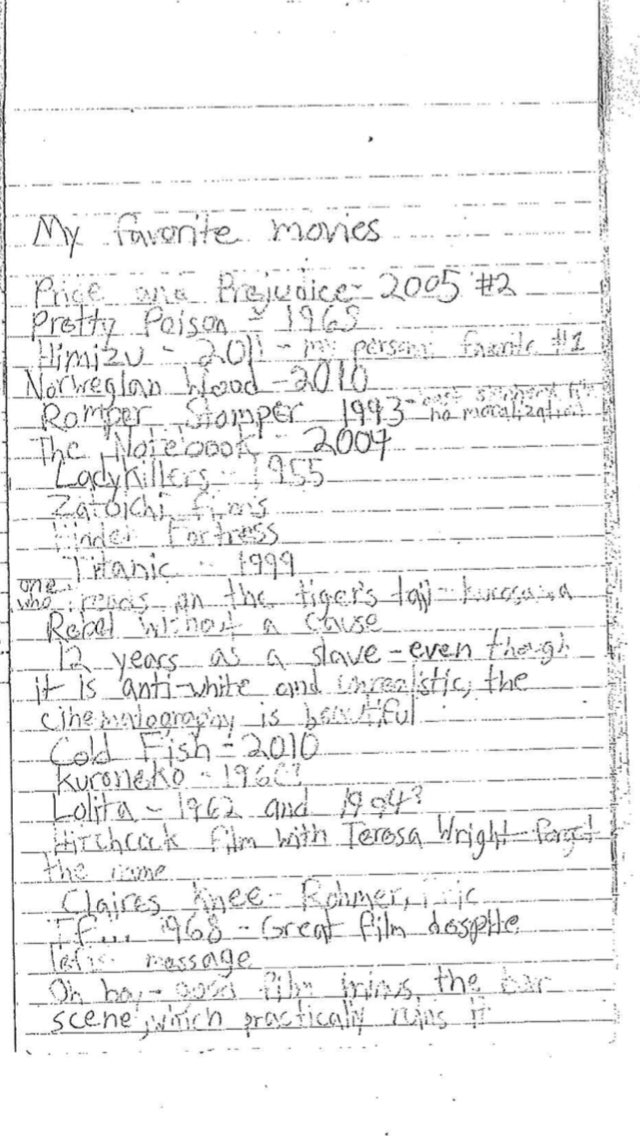 My favorite movies
Pride and Prejudice - 2005 #2
Pretty Poison - 1968
Himizu - 2011 - my personal favorite #1
Norwegian Wood - 2010
Romper Stomper 1993 - no moralization
The Notebook - 2004
Ladykillers - 1955
Zatoichi films
Hidden Fortress
Titanic - 1999
one who treads on the tiger's tail - kurosawa
Rebel without a cause
12 years as a slave - even though
it is anti-white and unrealistic, the
cinematography is beautiful
Cold Fish - 2010
Kuroneko - 1968?
Lolita - 1962 and 1994?
Hitchcock film with Teresa Wright - forgot
the name
Claires Knee - Rohmer, Eric
If... 1968 - Great film despite
leftist message
Oh boy - good film minus the bar
scene, which practically ruins it